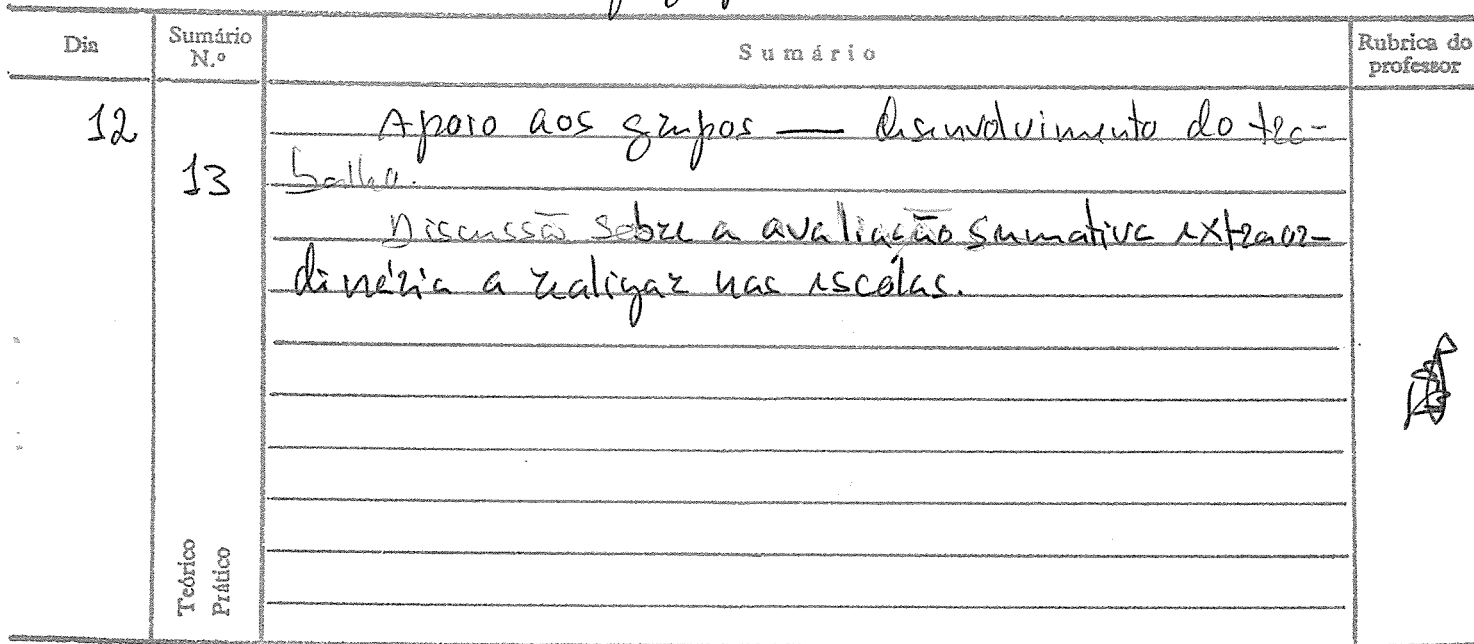 Dia
Sumário N.º
Sumário
Rubrica do professor
12
13
Apoio aos grupos — desenvolvimento do tra-
balho.
Discussão sobre a avaliação sumativa extraor-
dinária a realizar nas escolas.
Teórico
Prático